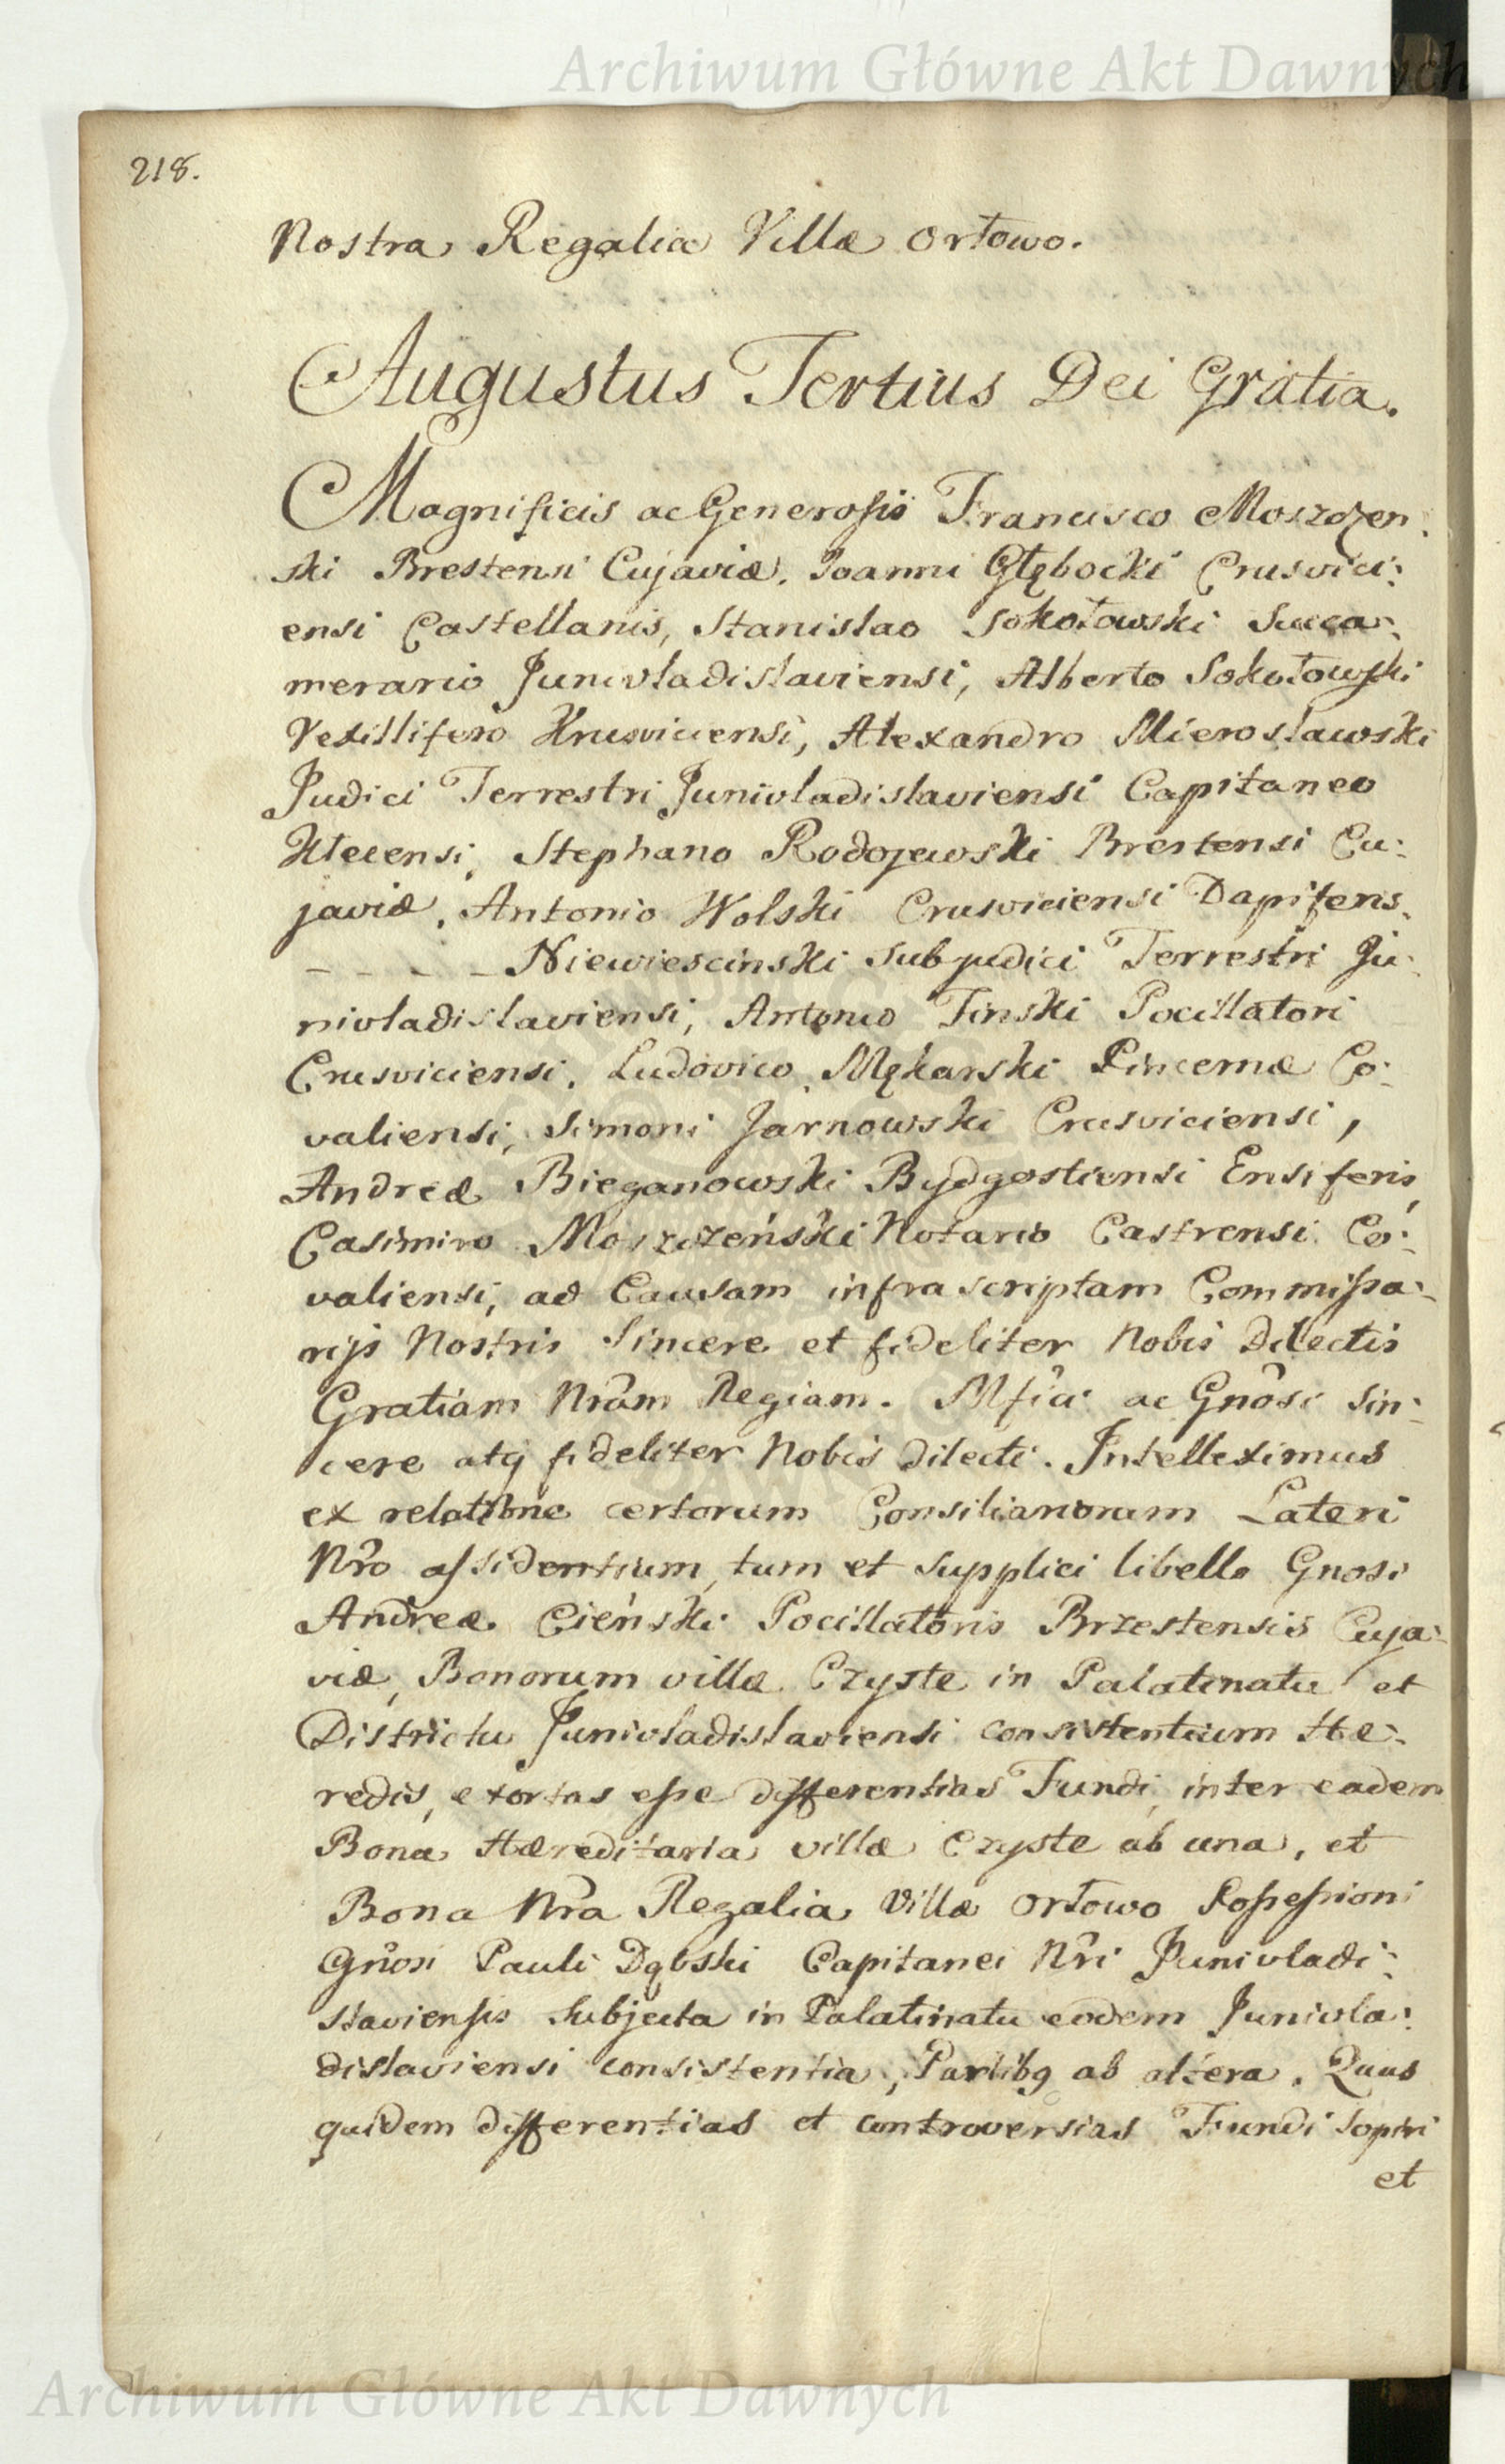 Archiwum Główne Akt Dawnych
218.
Nostra Regalia Villæ Orłowo.
Augustus Tertius Dei Gratia.
Magnificis ac Generosis Francisco Moszczen:
ski Brestensi Cujaviæ, Joanni Głębocki Crusvici:
ensi Castellanis, Stanislao Sokołowski Succa:
merario Junivladislaviensi, Alberto Sokołowski
Vexillifero Kruswiciensi, Alexandro Mierosławski
Judici Terrestri Junivladislaviensi Capitaneo
Klecensi, Stephano Radojewski Brestensi Cu:
javiæ, Antonio Wolski Crusviciensi Dapiferis,
_ _ _ _ Niewiescinski Subjudici Terrestri Ju:
nivladislaviensi, Antonio Tinski Pocillatori
Crusviciensi, Ludovico Mękarski Pincernæ Co:
valiensi, Simoni Jarnowski Crusviciensi,
Andreæ Bieganowski Bydgostiensi Ensiferis,
Casimiro Moszczeński Notario Castrensi Co:
valiensi, ad Causam infrascriptam Commissa:
rijs Nostris Sincere et fideliter Nobis Dilectis
Gratiam Nrãm Regiam. Mfici ac Gnõsi Sin:
cere atq fideliter Nobis dilecti. Intelleximus
ex relatione certorum Consiliariorum Lateri
Nrõ assidentium, tum et supplici libello Gnosi
Andreæ Cieński Pocillatoris Brzestensis Cuja:
viæ, Bonorum villæ Czyste in Palatinatu et
Districtu Junivladislaviensi consistentium Hæ:
redis, exortas esse differentias Fundi, inter eadem
Bona Hæreditaria villæ Czyste ab una, et
Bona Nrã Regalia Villæ Orłowo Possessioni
Gnõsi Pauli Dąbski Capitanei Nrĩ Junivladi:
slaviensis Subjecta in Palatinatu eodem Junivla:
dislaviensi consistentia, Partibq ab altera. Quas
quidem differentias et controversias Fundi sopiri
et
Archiwum Główne Akt Dawnych